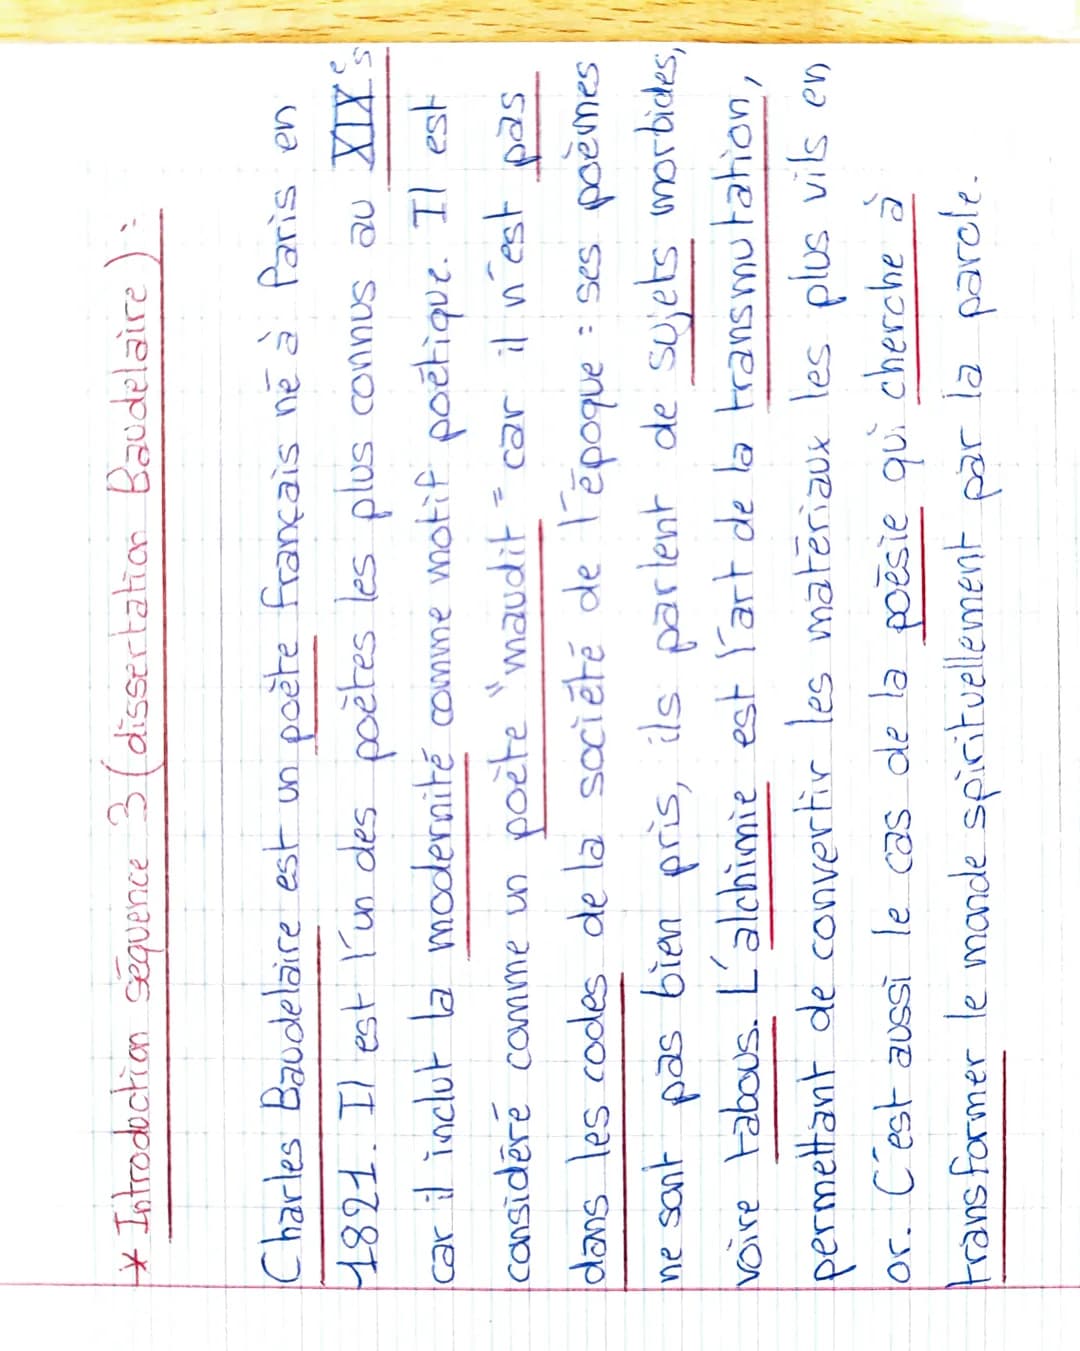 * Introduction séquence 3 (dissertation Baudelaire) :
Charles Baudelaire est un poète français né à Paris en
1821. Il est l'un des poètes les plus connus au XIXe s
car il inclut la modernité comme motif poétique. Il est
considéré comme un poète "maudit" car il n'est pas
dans les codes de la société de l'époque : ses poèmes
ne sont pas bien pris, ils parlent de sujets morbides,
voire tabous. L'alchimie est l'art de la transmutation,
permettant de convertir les matériaux les plus vils en
or. C'est aussi le cas de la poésie qui cherche à
transformer le monde spirituellement par la parole.